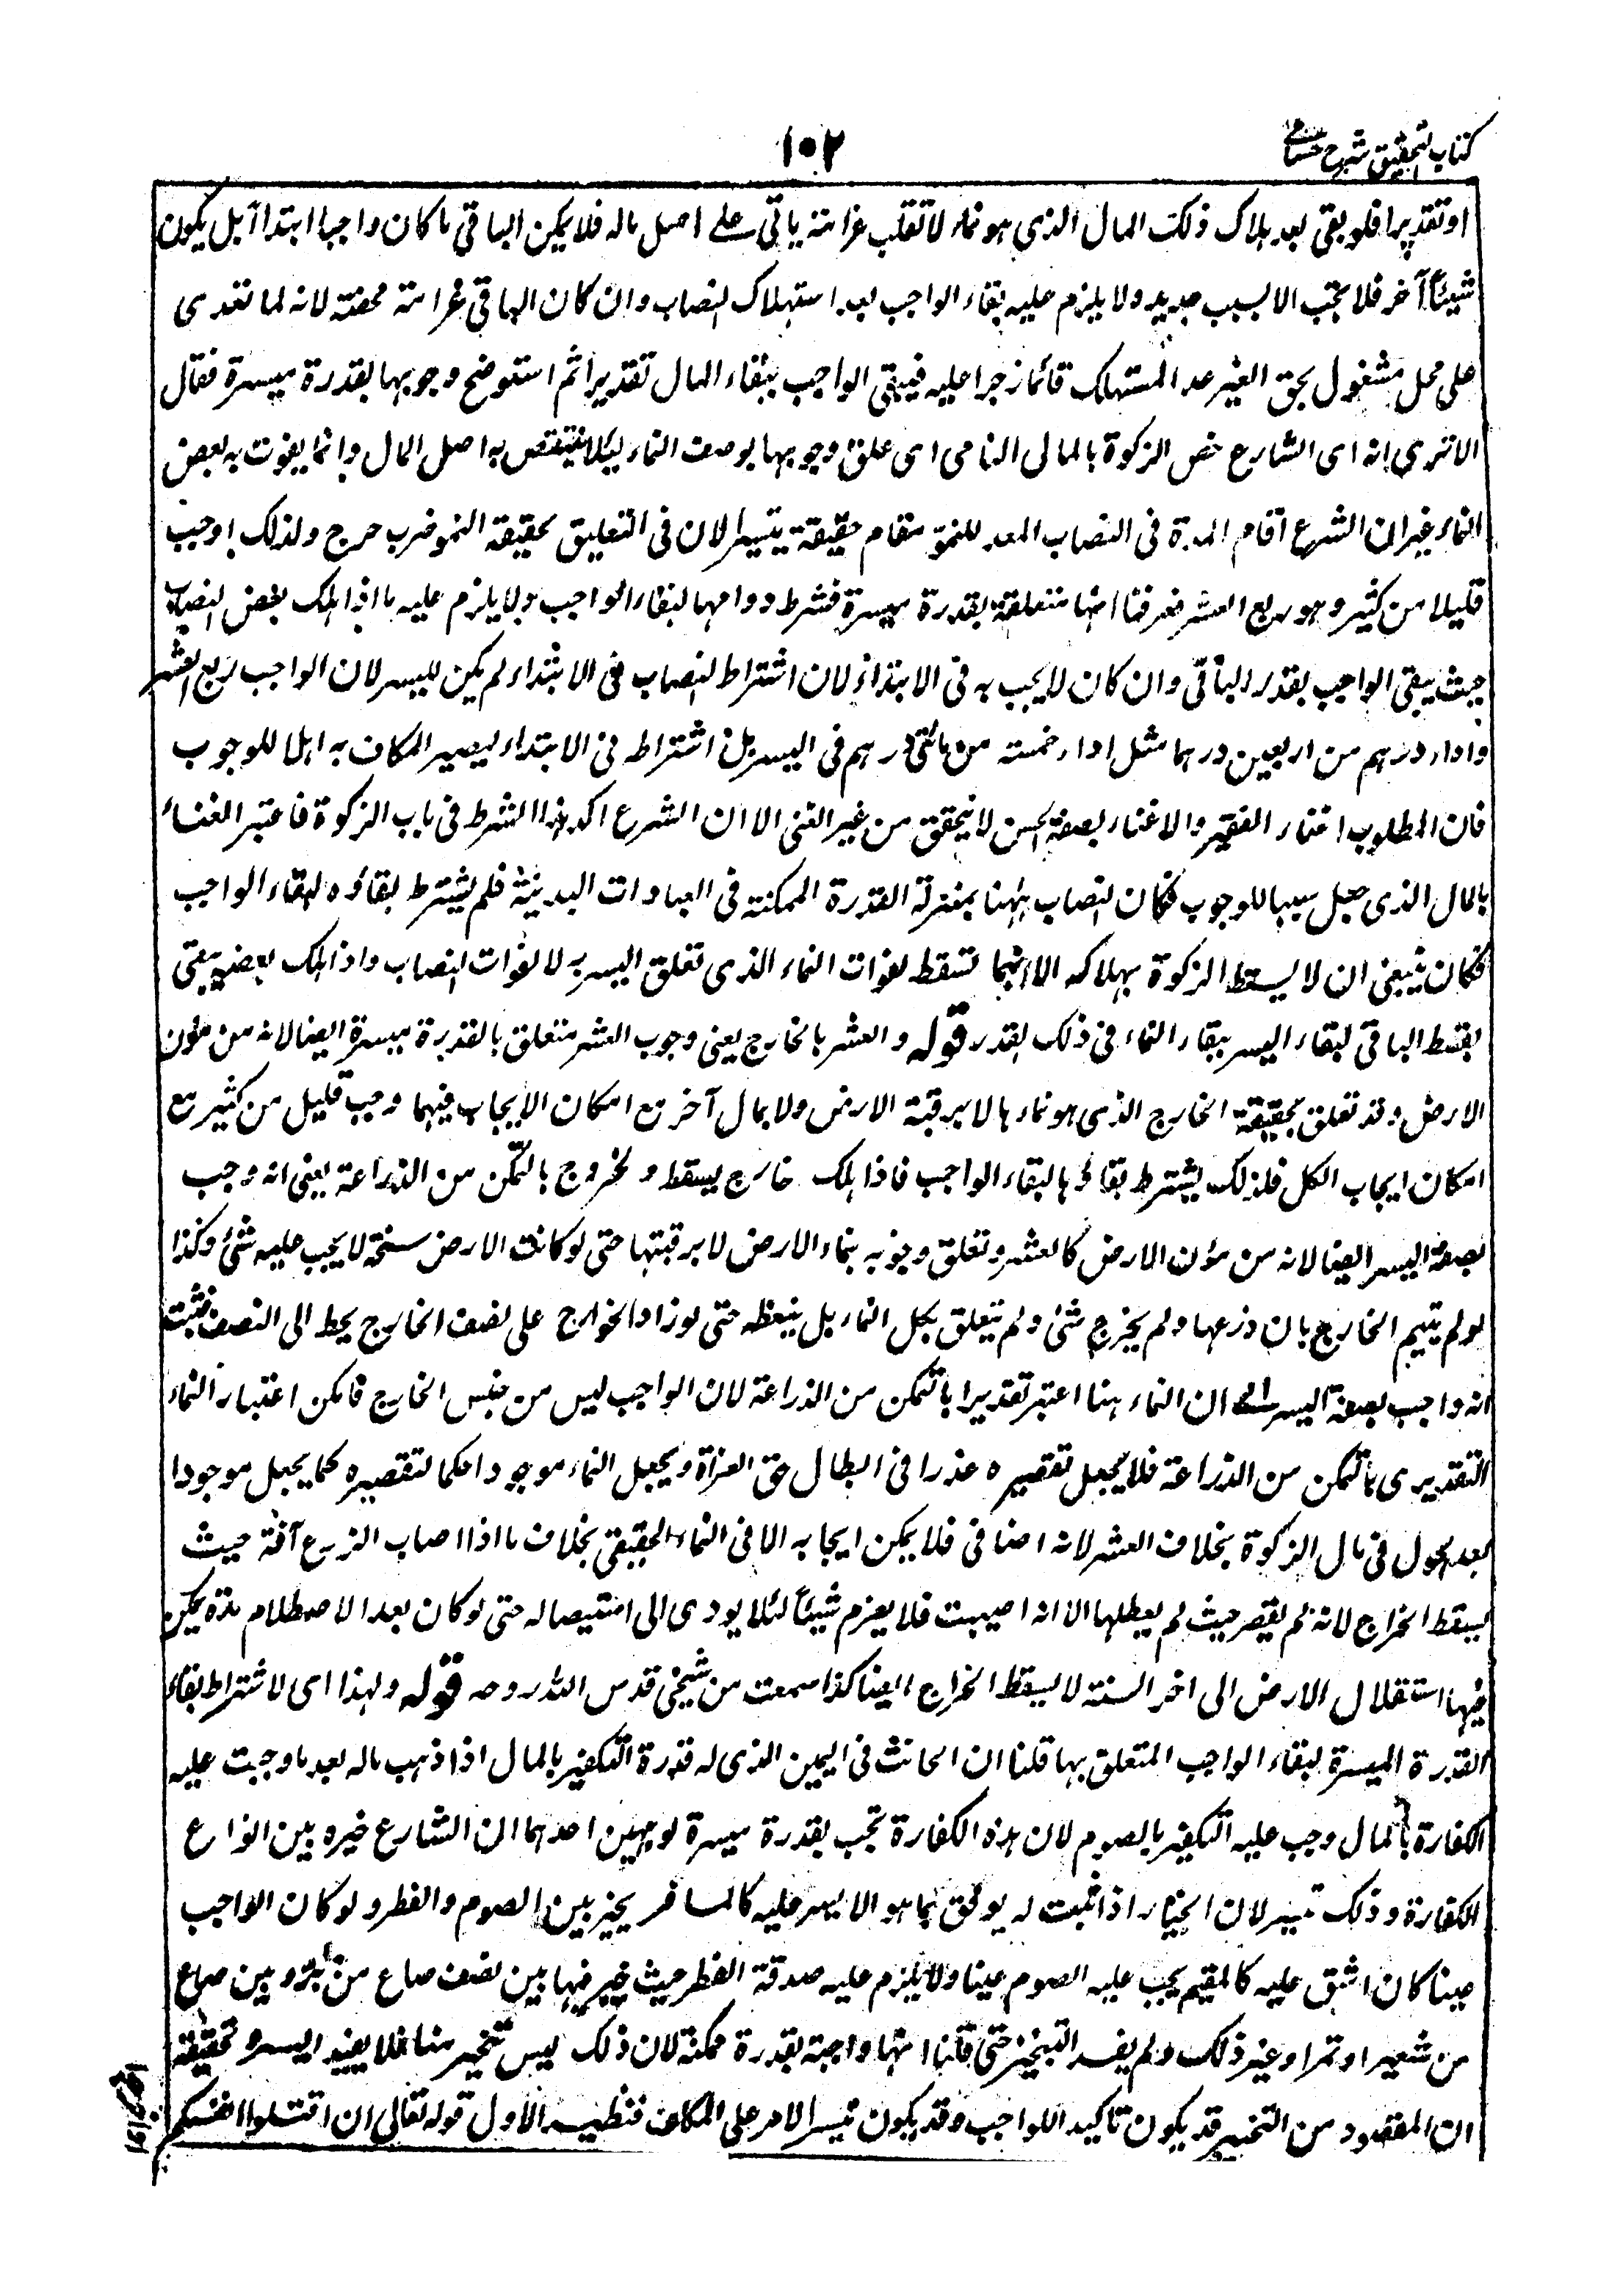 كتاب التحقيق شرح حسامي
١٠٢
او تقديرا فلو بقى بعد هلاك ذلك المال الذى هو نماء لانقلب غرامة ياتى على اصل ماله فلا يكن الباقى ما كان واجبا ابتداء بل يكون
شيئا آخر فلا يجب الا بسبب جديد ولا يلزم عليه بقاء الواجب بعد استهلاك النصاب وان كان الباقى غرامة محضة لانه لما تعدى
على محل مشغول بحق الغير عد المستهلك قائما زجرا عليه فيبقى الواجب ببقاء المال تقديرا ثم استوضح وجوبها بقدرة ميسرة فقال
الا ترى انه اى الشارع خص الزكوة بالمال النامى اى علق وجوبها بوصف النماء ليلا ينتقص به اصل المال وانما يفوت به بعض
النماء غير ان الشرع اقام المدة فى النصاب المعد للنمو مقام حقيقة تيسيرا لان فى التعليق بحقيقة النمو ضرب حرج ولذلك اوجب
قليلا من كثير وهو ربع العشر فعرفنا انها متعلقة بقدرة ميسرة فشرط دوامها لبقاء الواجب ولا يلزم عليه ما اذا هلك بعض النصاب
حيث يبقى الواجب بقدر الباقى وان كان لا يجب به فى الابتداء لان اشتراط النصاب فى الابتداء لم يكن لليسر لان الواجب ربع العشر
واداء درهم من اربعين درهما مثل اداء خمسة من مائتى درهم فى اليسر بل اشتراطه فى الابتداء ليصير المكلف به اهلا للوجوب
فان المطلوب اغناء الفقير والاغناء بصفة الحسن لا يتحقق من غير الغنى الا ان الشرع اكد هذا الشرط فى باب الزكوة فاعتبر الغناء
بالمال الذى جعل سببا للوجوب فكان النصاب ههنا بمنزلة القدرة الممكنة فى العبادات البدنية فلم يشترط بقاؤه لبقاء الواجب
فكان ينبغى ان لا يسقط الزكوة بهلاكه الا انها تسقط لفوات النماء الذى تعلق اليسر به لا لفوات النصاب واذا هلك بعضه يبقى
بقسط الباقى لبقاء اليسر ببقاء النماء فى ذلك القدر قوله والعشر بالخارج يعنى وجوب العشر متعلق بالقدرة ميسرة ايضا لانه من مؤن
الارض وقد تعلق بحقيقة الخارج الذى هو نماءها لا برقبة الارض ولا بمال آخر مع امكان الايجاب فيهما وجب قليل من كثير مع
امكان ايجاب الكل فلذلك يشترط بقاؤها لبقاء الواجب فاذا هلك خارج يسقط والخروج بالتمكن من الزراعة يعنى انه وجب
بصفة اليسر ايضا لانه من مؤن الارض كالعشر وتعلق وجوبه بنماء الارض لا برقبتها حتى لو كانت الارض سبخة لا يجب عليه شئ وكذا
لو لم يتيم الخارج بان زرعها ولم يخرج شئ ولم يتعلق بكل النماء بل ببعضه حتى لو زاد الخوارج على نصف الخارج يحط الى النصف فثبت
انه واجب بصفة اليسر الا ان النماء هنا اعتبر تقديرا بالتمكن من الزراعة لان الواجب ليس من جنس الخارج فامكن اعتبار النماء
التقديرى بالتمكن من الزراعة فلا يجعل تقصيره عذرا فى ابطال حق الغزاة ويجعل النماء موجودا حكما لتقصيره كما يجعل موجودا
بعد الحول فى مال الزكوة بخلاف العشر لانه اضافى فلا يمكن ايجابه الا فى النماء الحقيقى بخلاف ما اذا اصاب الزرع آفة حيث
يسقط الخراج لانه لم يقصر حيث لم يعطلها الا انه اصيبت فلا يغرم شيئا لئلا يودى الى استيصاله حتى لو كان بعد الاصطلام مدة يمكن
فيها استغلال الارض الى اخر السنة لا يسقط الخراج ايضا كذا سمعت من شيخى قدس الله روحه قوله ولهذا اى لاشتراط بقاء
القدرة الميسرة لبقاء الواجب المتعلق بها قلنا ان الحانث فى اليمين الذى له قدرة التكفير بالمال اذا ذهب ماله بعد ما وجبت عليه
الكفارة بالمال وجب عليه التكفير بالصوم لان هذه الكفارة تجب بقدرة ميسرة لوجهين احدهما ان الشارع خيره بين انواع
الكفارة وذلك تيسير لان الخيار اذا ثبت له يوفق بما هو الايسر عليه كالمسافر يخير بين الصوم والفطر ولو كان الواجب
عينا كان اشق عليه كالمقيم يجب عليه الصوم عينا ولا يلزم عليه صدقة الفطر حيث خير فيها بين نصف صاع من بر وبين صاع
من شعير او تمر او غير ذلك ولم يفد التخيير حتى قلنا انها واجبة بقدرة ممكنة لان ذلك ليس تخيير منا فلا يفيد اليسر وتحقيقه
ان المقصود من التخيير قد يكون تاكيد اللواجب وقد يكون تيسير الامر على المكلف فنظير الاول قوله تعالى ان اقتلوا انفسكم